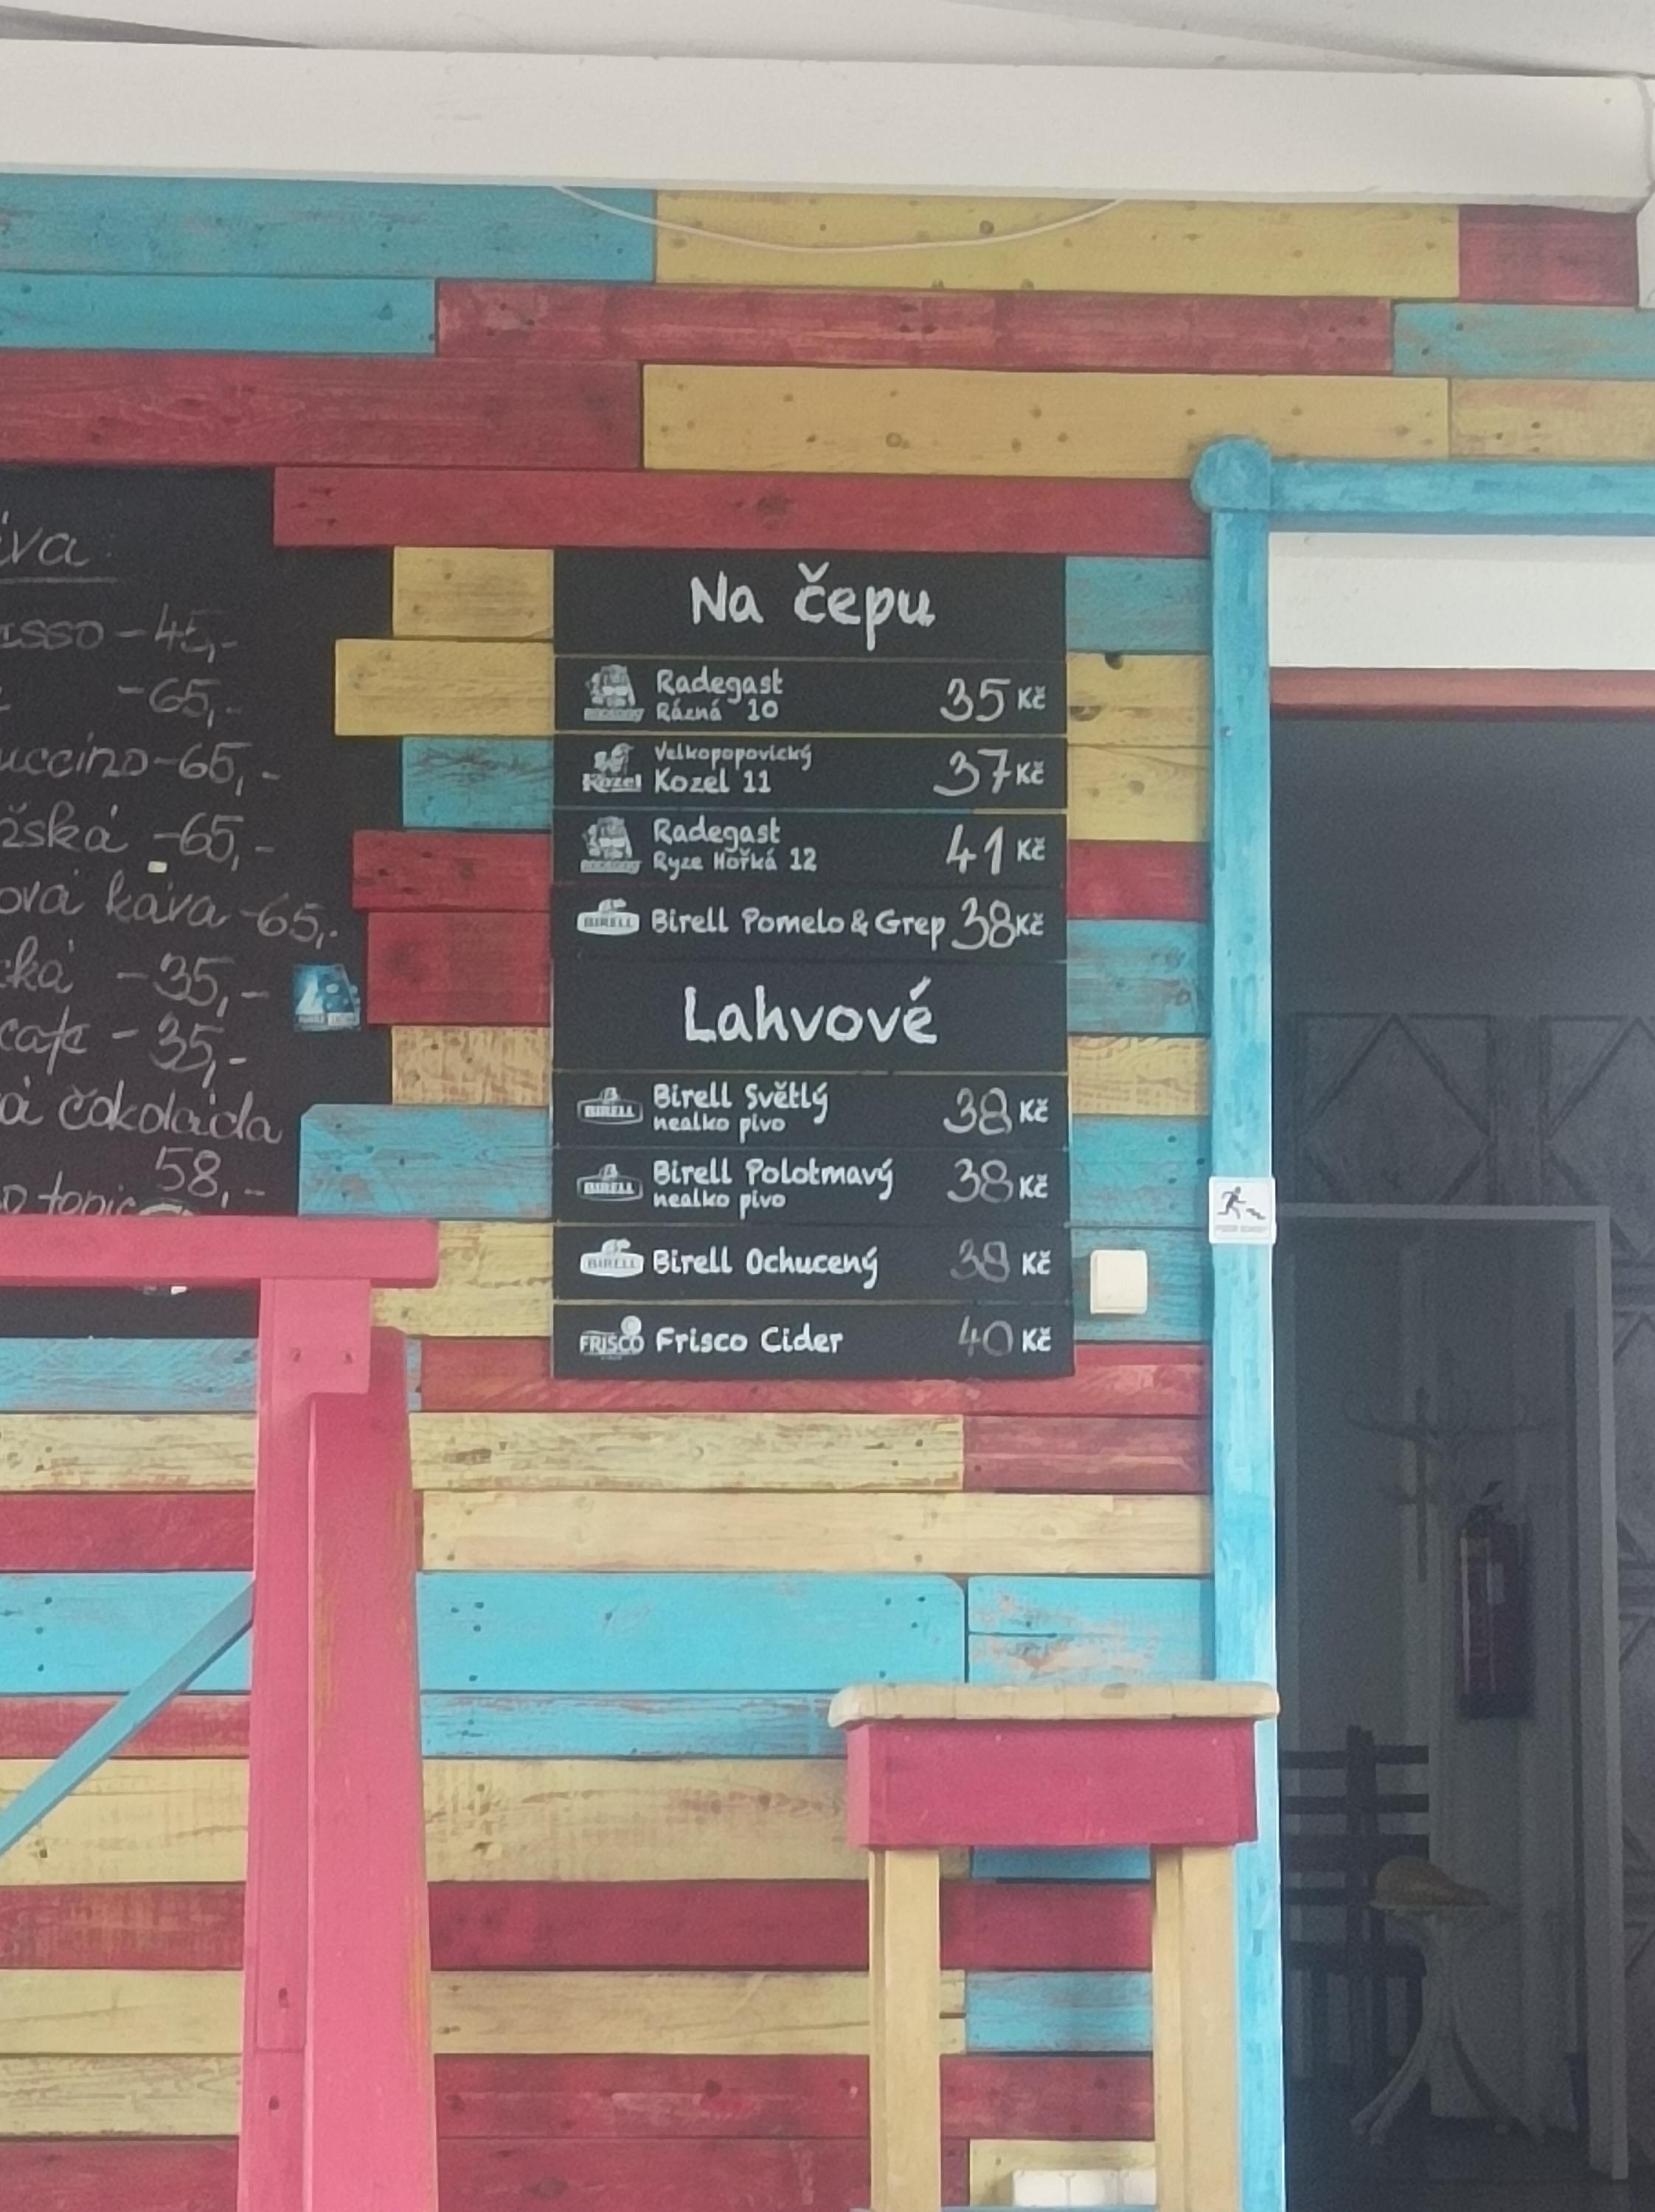 45,-
-65,-
-65,-
-65,-
káva -65,-
-35,-
-35,-
čokoláda
58,-
Na čepu
Radegast
Rázná 10 35 Kč
Kozel
Velkopopovický
Kozel 11 37 Kč
Radegast
Ryze Hořká 12 41 Kč
BIRELL Birell Pomelo & Grep 38 Kč
Lahvové
BIRELL Birell Světlý
nealko pivo 38 Kč
BIRELL Birell Polotmavý
nealko pivo 38 Kč
BIRELL Birell Ochucený 38 Kč
FRISCO Frisco Cider 40 Kč